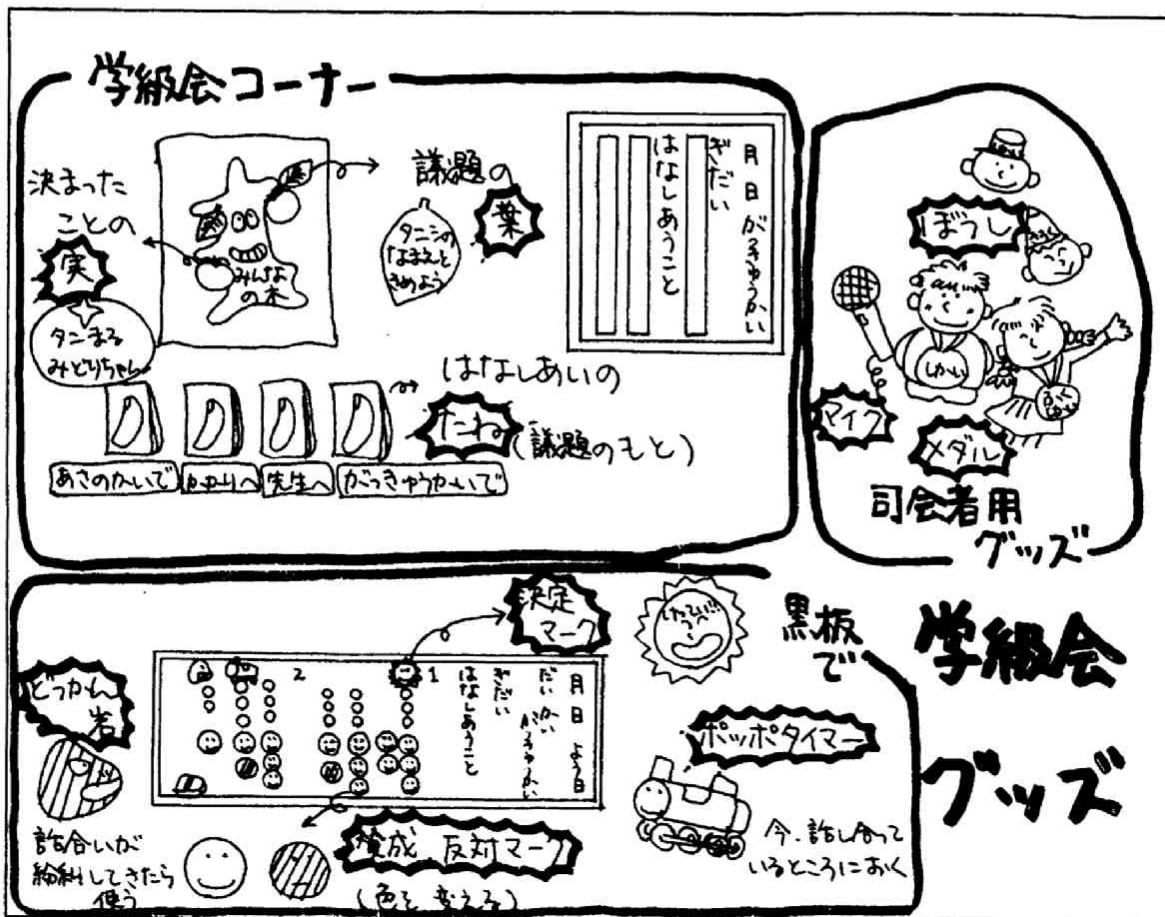 学級会コーナー
決まった
ことの
実
タニまる
みどりちゃん
みんな
の木
議題の
葉
タニシの
なまえを
きめよう
月 日 がっきゅうかい
ぎだい
はなしあうこと
はなしあいの
たね(議題のもと)
あさのかいで
かかりへ
先生へ
がっきゅうかいで
ぼうし
しかい
マイク
メダル
司会者用
グッズ
学級会
グッズ
黒板
で
決定
マーク
どっかん
岩
話合いが
紛糾してきたら
使う
月 日 よう日
だい かい がっきゅうかい
ぎだい
はなしあうこと
1
2
賛成 反対マーク
(色を変える)
ポッポタイマー
今、話し合って
いるところにおく